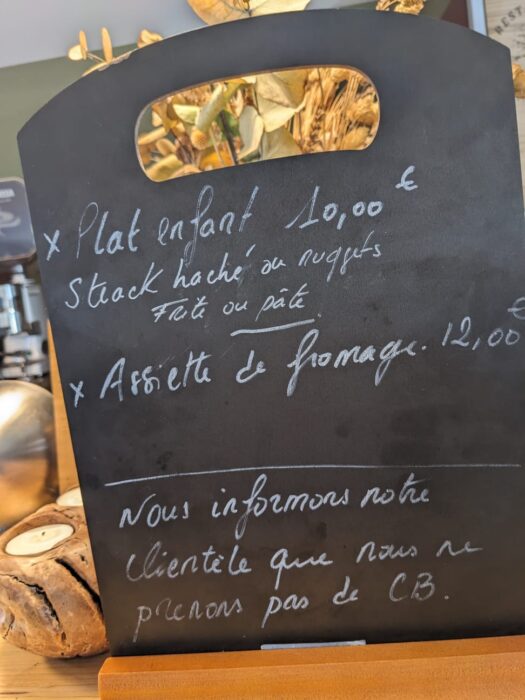 BEST
x Plat enfant 10,00 €
Steack haché ou nuggets
Frite ou pâte
x Assiette de fromage. 12,00 €
Nous informons notre
clientèle que nous ne
prenons pas de CB.